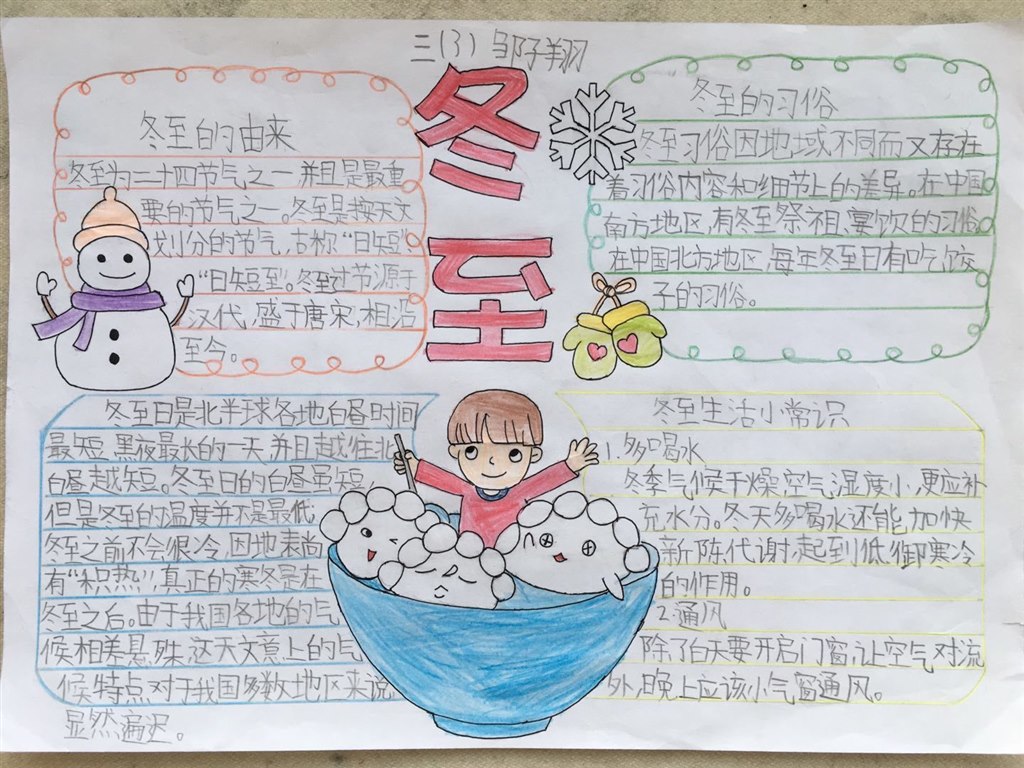 三(3) 邹子翔
冬至
冬至的由来
冬至为二十四节气之一并且是最重
要的节气之一。冬至是按天文
划分的节气,古称“日短”
“日短至”。冬至过节源于
汉代,盛于唐宋,相沿
至今。
冬至的习俗
冬至习俗因地域不同而又存在
着习俗内容和细节上的差异。在中国
南方地区,有冬至祭祖、宴饮的习俗。
在中国北方地区,每年冬至日有吃饺
子的习俗。
冬至日是北半球各地白昼时间
最短,黑夜最长的一天,并且越往北
白昼越短。冬至日的白昼虽短,
但是冬至的温度并不是最低,
冬至之前不会很冷,因地表尚
有“积热”,真正的寒冬是在
冬至之后。由于我国各地的气
候相差悬殊,这天文意上的气
候特点对于我国多数地区来说
显然遍迟。
冬至生活小常识
1.多喝水
冬季气候干燥,空气湿度小,更应补
充水分。冬天多喝水还能,加快
新陈代谢,起到低御寒冷
的作用。
2.通风
除了白天要开启门窗,让空气对流
外,晚上应该小气窗通风。